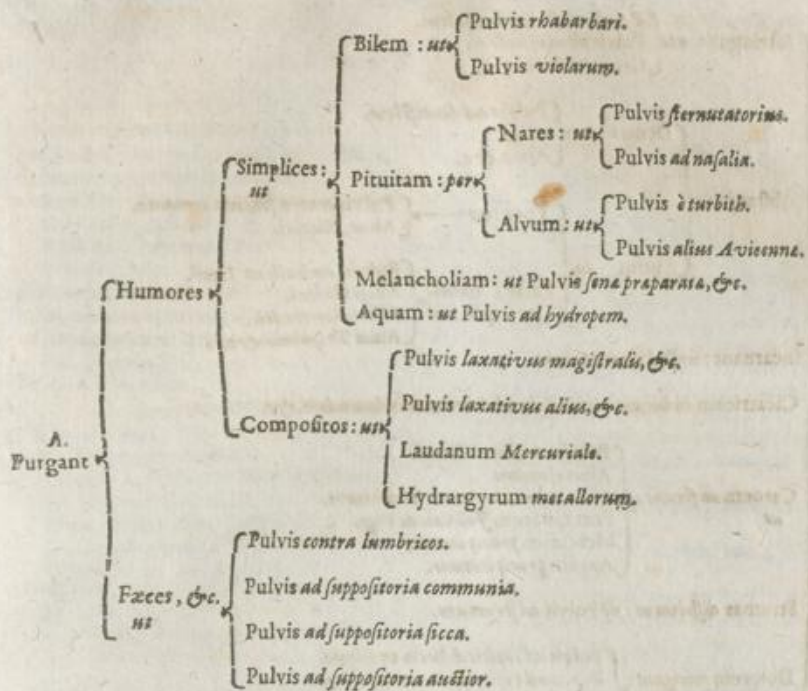 Bilem : ut
Pulvis rhabarbari.
Pulvis violarum.
Simplices:
ut
Pituitam : per
Nares: ut
Pulvis ſternutatorius.
Pulvis ad naſalia.
Alvum: ut
Pulvis è turbith.
Pulvis alius Avicennæ.
Melancholiam: ut Pulvis ſenæ præparatæ, &c.
Aquam: ut Pulvis ad hydropem.
A.
Purgant
Humores
Compoſitos: ut
Pulvis laxativus magiſtralis, &c.
Pulvis laxativus alius, &c.
Laudanum Mercuriale.
Hydrargyrum metallorum.
Fæces, &c.
ut
Pulvis contra lumbricos.
Pulvis ad ſuppoſitoria communia.
Pulvis ad ſuppoſitoria ſicca.
Pulvis ad ſuppoſitoria auctior.